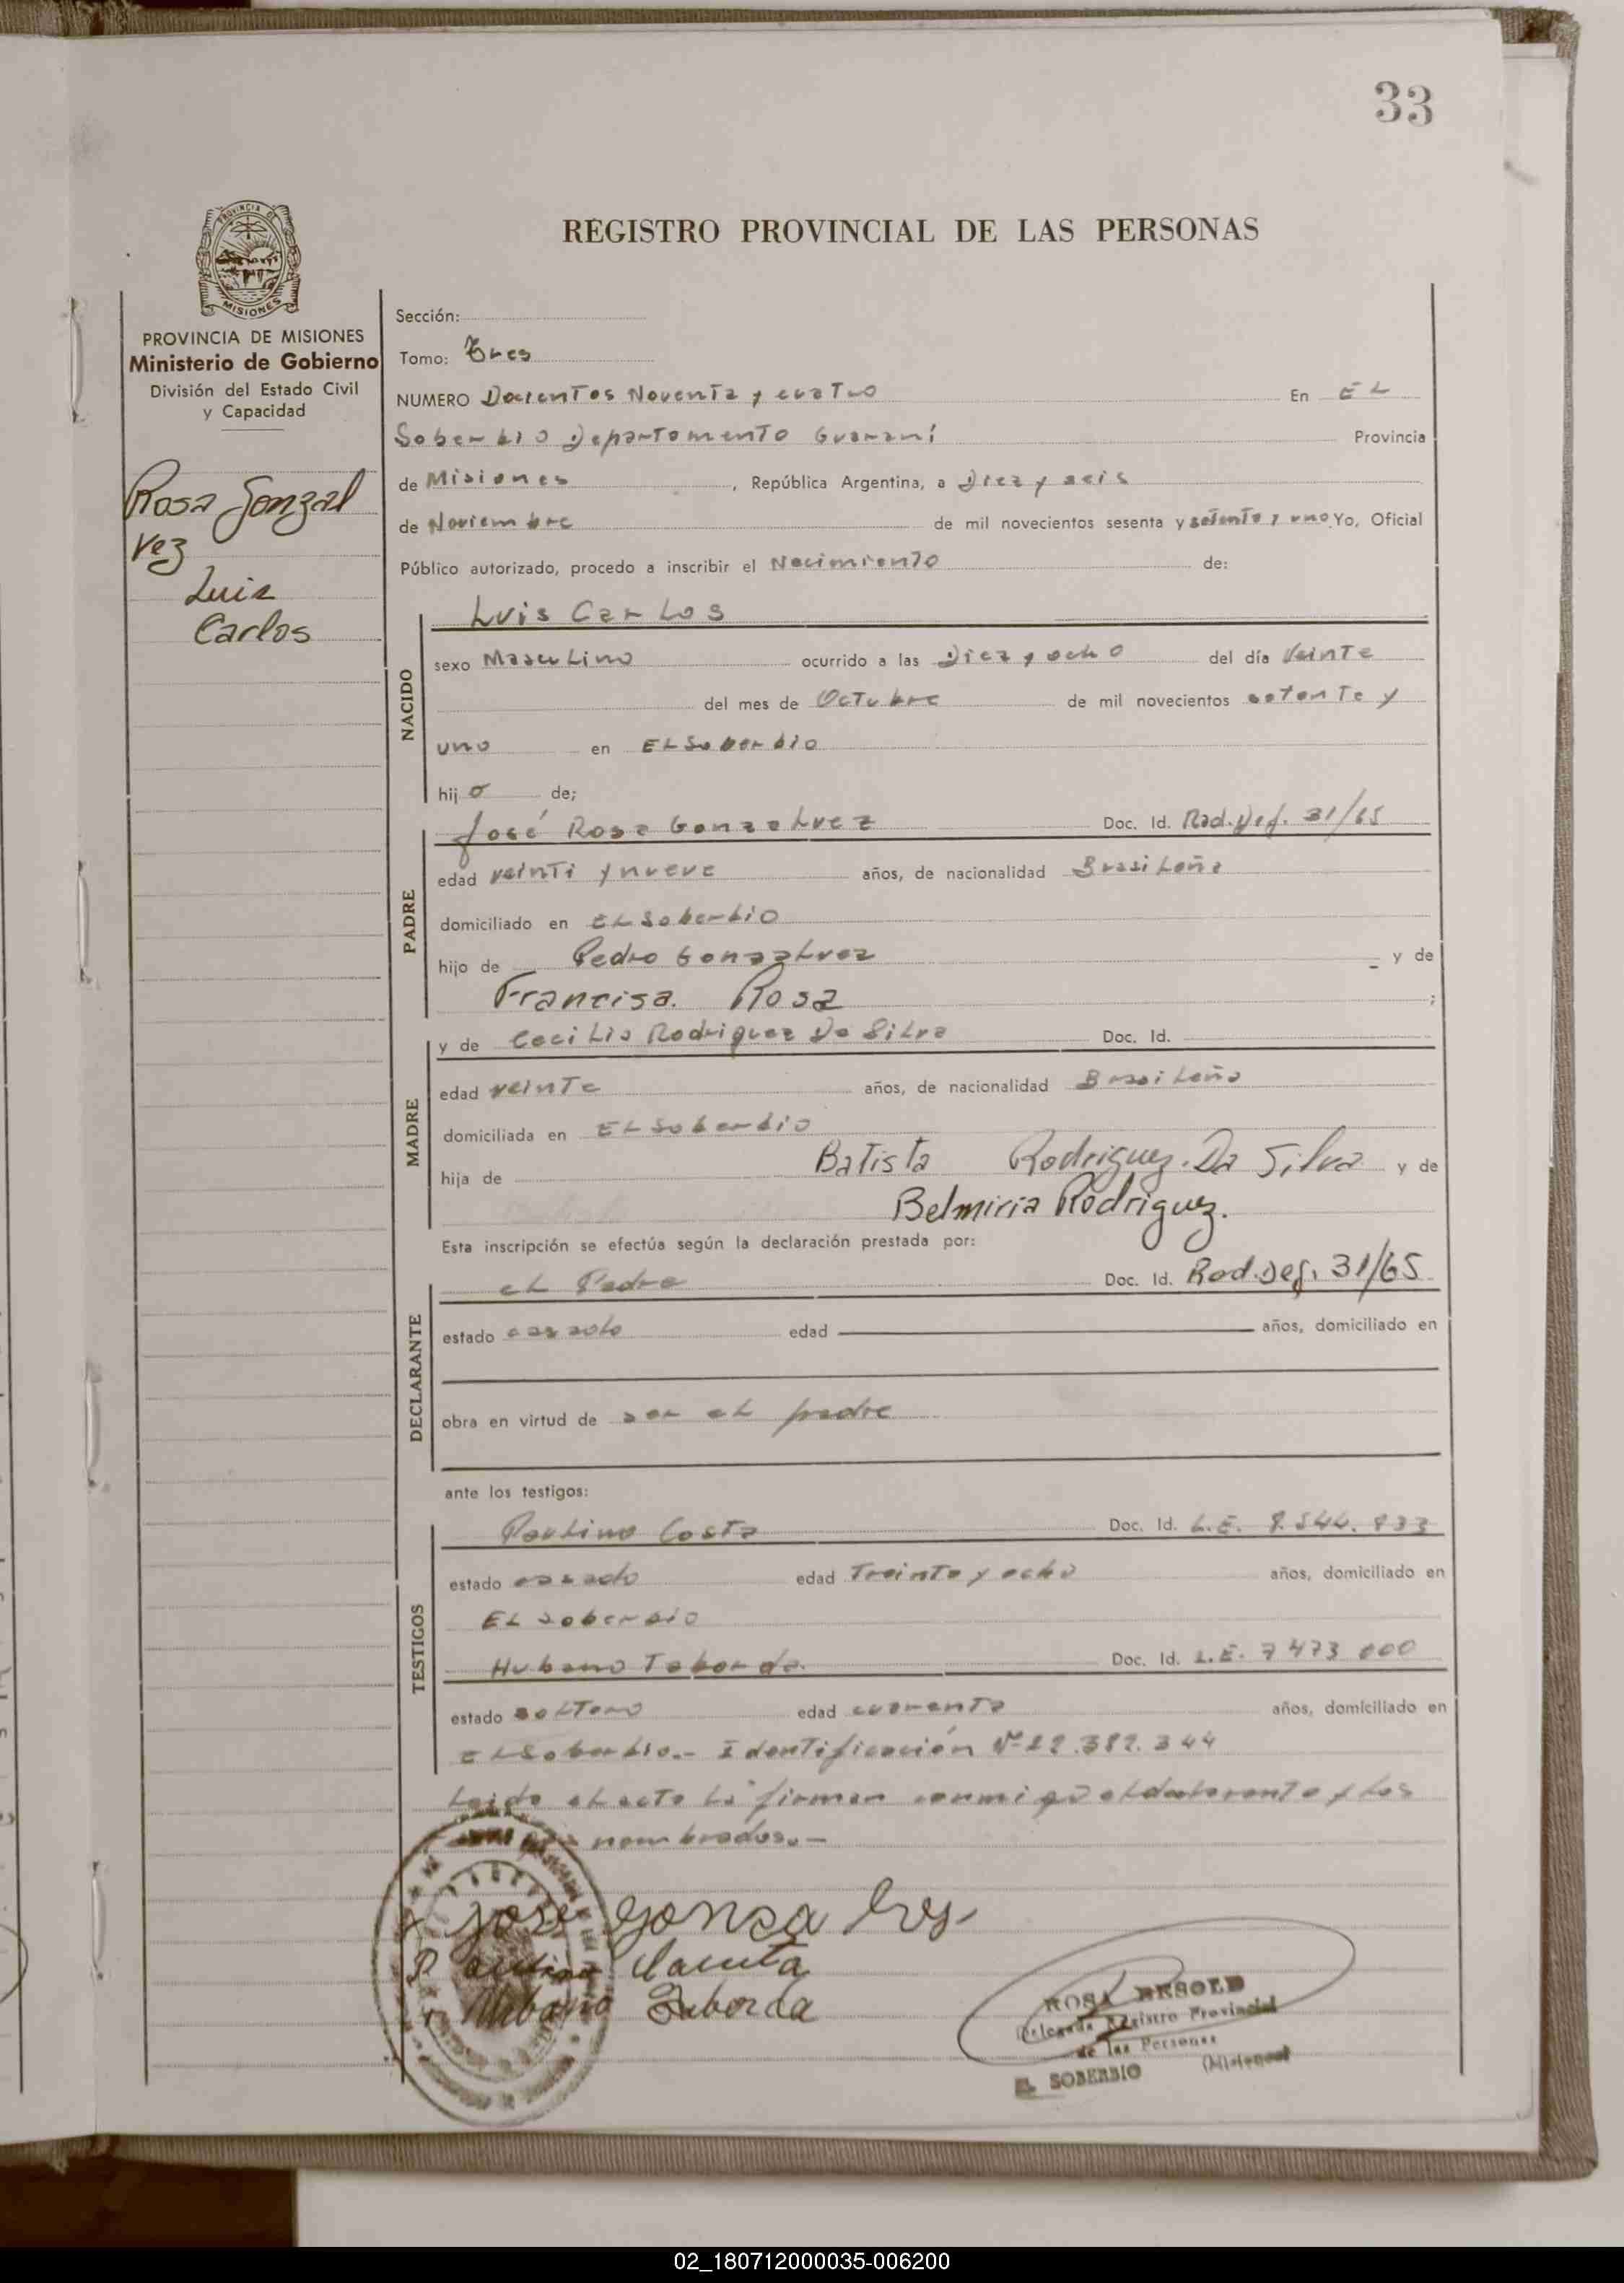 33
PROVINCIA DE
MISIONES
REGISTRO PROVINCIAL DE LAS PERSONAS
PROVINCIA DE MISIONES
Ministerio de Gobierno
División del Estado Civil
y Capacidad
Rosa Gonzal
vez
Luis
Carlos
Sección:
Tomo: Tres
NUMERO Docientos Noventa y cuatro En EL
Soberbio Departamento Guaraní Provincia
de Misiones, República Argentina, a Diez y seis
de Noviembre de mil novecientos sesenta y setenta y uno Yo, Oficial
Público autorizado, procedo a inscribir el Nacimiento de:
NACIDO
Luis Carlos
sexo Masculino ocurrido a las Diez y ocho del día Veinte
del mes de Octubre de mil novecientos setenta y
uno en EL Soberbio
hijo de;
PADRE
José Rosa Gonzalvez Doc. Id. Rad. Def. 31/65
edad veinti y nueve años, de nacionalidad Brasileña
domiciliado en EL Soberbio
hijo de Pedro Gonzalvez y de
Francisa. Rosa ;
MADRE
y de Cecilia Rodriguez Da Silva Doc. Id.
edad veinte años, de nacionalidad Brasileña
domiciliada en EL Soberbio
hija de Batista Rodriguez. Da Silva y de
Belmiria Rodriguez.
Esta inscripción se efectúa según la declaración prestada por:
DECLARANTE
el Padre Doc. Id. Rad. Def. 31/65
estado casado edad años, domiciliado en
obra en virtud de ser el padre
ante los testigos:
TESTIGOS
Paulino Costa Doc. Id. L.E. 8.544.833
estado casado edad Treinta y ocho años, domiciliado en
EL Soberbio
Hubano Taborda. Doc. Id. L.E. 7 473 000
estado soltero edad cuarenta años, domiciliado en
EL Soberbio.- Identificación Nº 22.382.344
Leida el acta la firman conmigo el declarante y los
nombrados.-
José Gonzalves
Paulino
Urbano Taborda
ROSA BESOLD
Delegada Registro Provincial
de las Personas
EL SOBERBIO (Misiones)
02_180712000035-006200